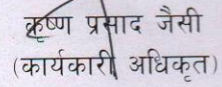 कृष्ण प्रसाद जैसी
(कार्यकारी अधिकृत)